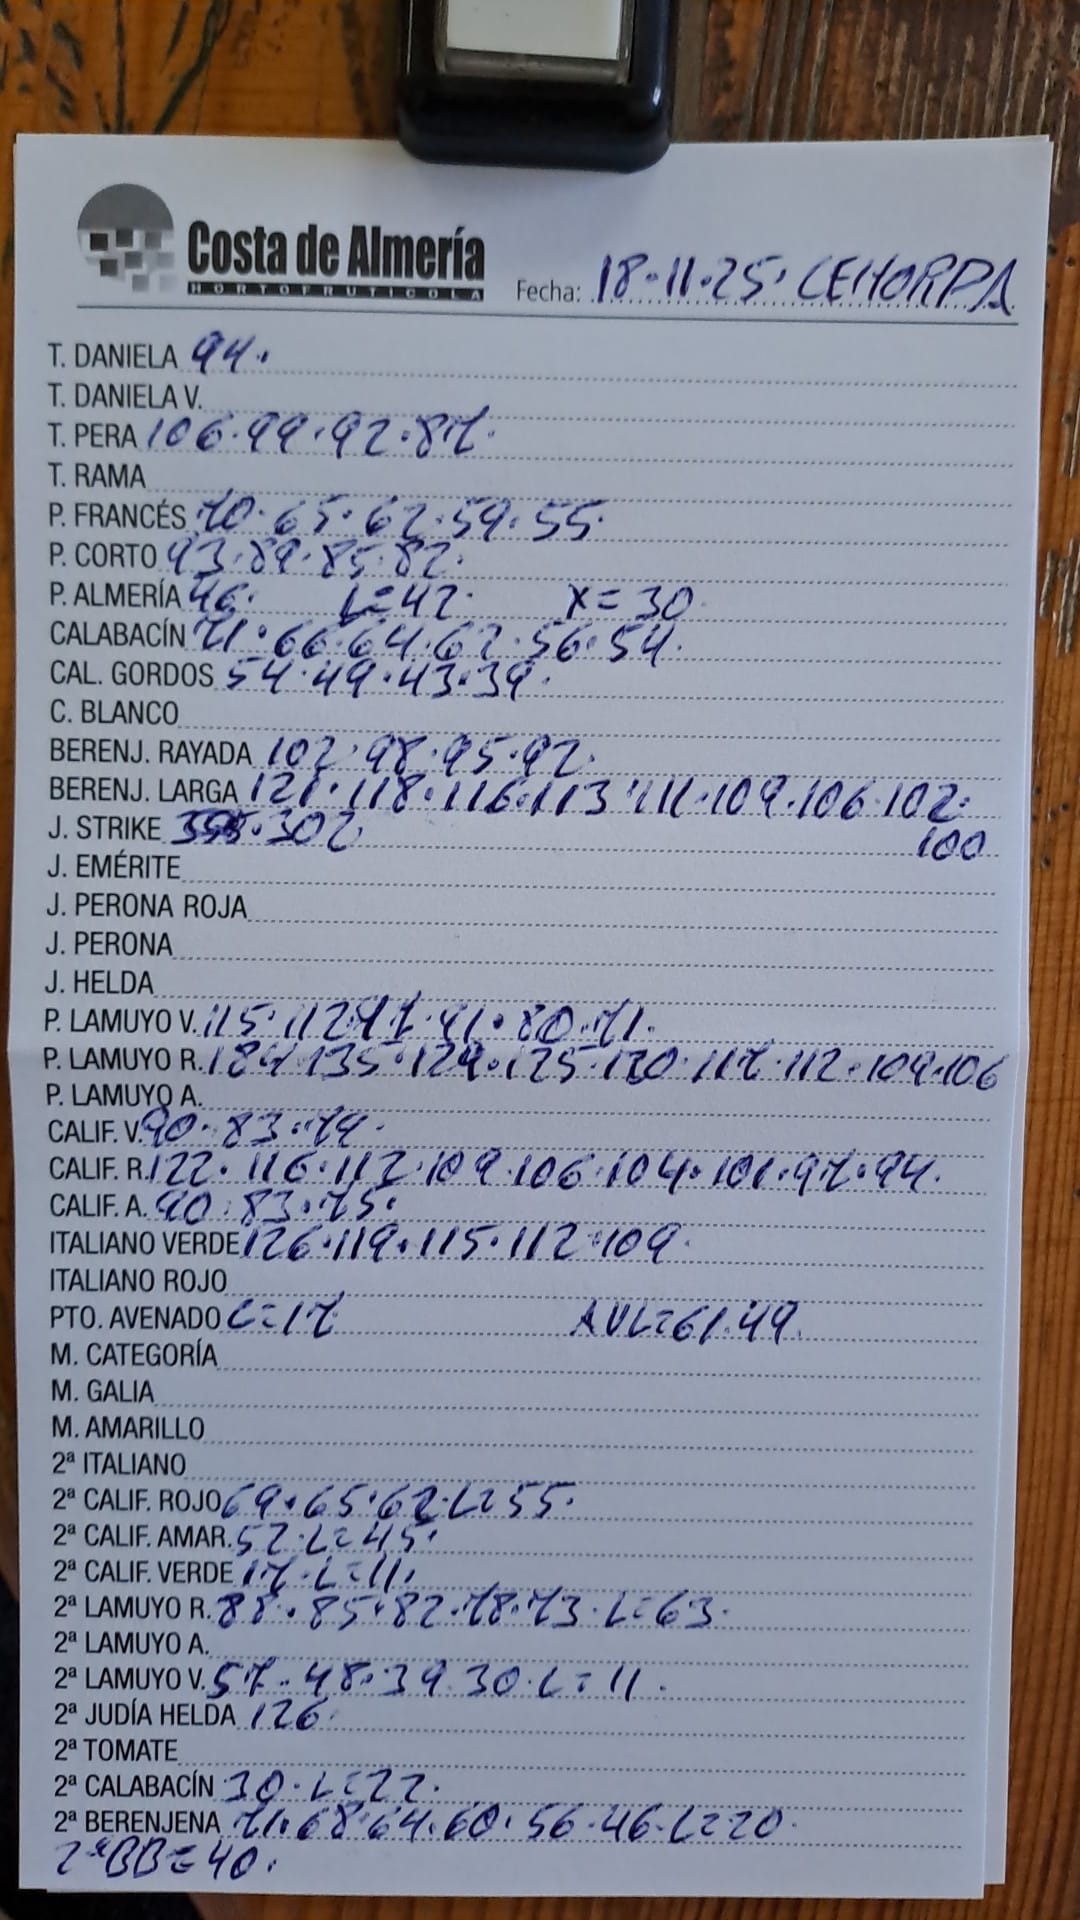 Costa de Almería
HORTOFRUTICOLA
Fecha: 18.11.25. CEHORPA
T. DANIELA 94.
T. DANIELA V.
T. PERA 106.99.92.87.
T. RAMA
P. FRANCÉS 70.65.62.59.55.
P. CORTO 93.89.85.82.
P. ALMERÍA 46. L=42. X=30.
CALABACÍN 71.66.64.62.56.54.
CAL. GORDOS 54.49.43.39.
C. BLANCO
BERENJ. RAYADA 102.98.95.92.
BERENJ. LARGA 121.118.116.113.111.109.106.102.
100
J. STRIKE 302
J. EMÉRITE
J. PERONA ROJA
J. PERONA
J. HELDA
P. LAMUYO V. 115.112.97.91.80.71.
P. LAMUYO R. 184.135.129.125.120.117.112.109.106
P. LAMUYO A.
CALIF. V. 90.83.79.
CALIF. R. 122.116.112.109.106.104.101.97.94.
CALIF. A. 90.83.75.
ITALIANO VERDE 126.119.115.112.109.
ITALIANO ROJO
PTO. AVENADO L=17 AVL=61.49.
M. CATEGORÍA
M. GALIA
M. AMARILLO
2ª ITALIANO
2ª CALIF. ROJO 69.65.62.L=55.
2ª CALIF. AMAR. 52.L=45.
2ª CALIF. VERDE 17.L=11.
2ª LAMUYO R. 88.85.82.78.73.L=63.
2ª LAMUYO A.
2ª LAMUYO V. 57.48.39.30.L=11.
2ª JUDÍA HELDA 126.
2ª TOMATE
2ª CALABACÍN 30.L=22.
2ª BERENJENA 71.68.64.60.56.46.L=20.
2ªBB=40.